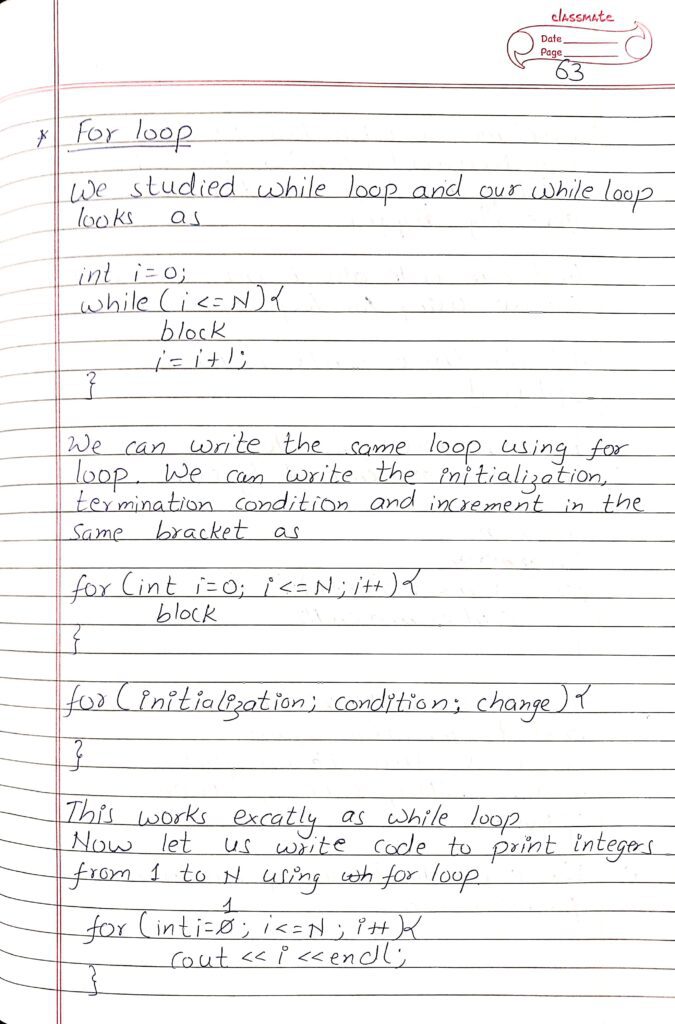 classmate
Date
Page
63
* For loop
We studied while loop and our while loop
looks as
int i=0;
while (i<=N){
block
i=i+1;
}
We can write the same loop using for
loop. We can write the initialization,
termination condition and increment in the
same bracket as
for (int i=0; i<=N; i++){
block
}
for (initialization; condition; change){
}
This works excatly as while loop
Now let us write code to print integers
from 1 to N using wh for loop.
1
for (int i=0; i<=N; i++){
cout << i <<endl;
}